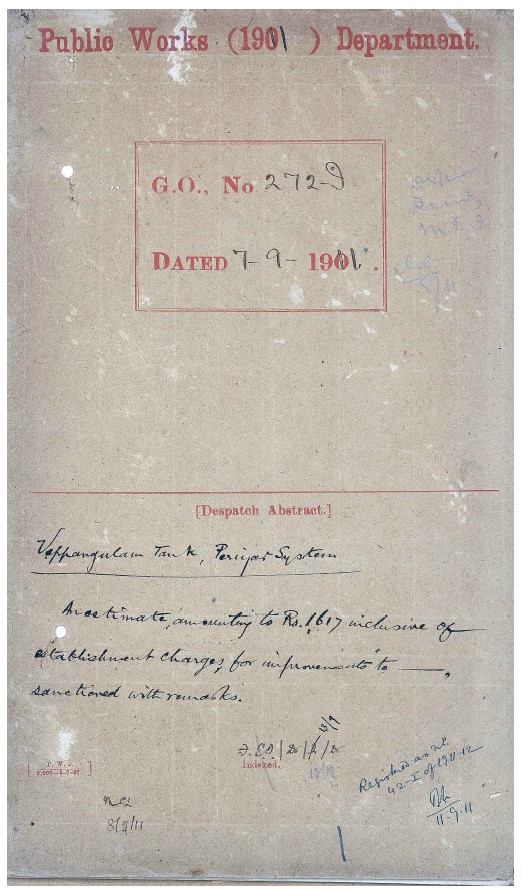 Public Works (1911) Department.
G.O., No 272-I
DATED 7-9-1911.
[Despatch Abstract.]
Veppangulam Tank, Periyar System
An estimate, amounting to Rs. 1617 inclusive of
establishment charges, for improvements to —,
sanctioned with remarks.
Indexed.
Registered as No.
42-I of 1911-12
11-9-11
8/9/11